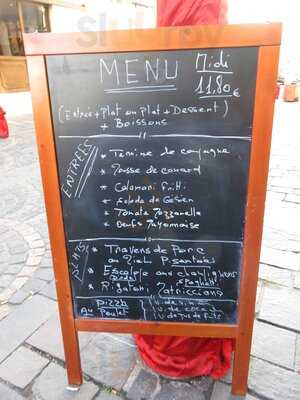 MENU
Midi
11,80€
(Entrée + Plat ou Plat + Dessert)
+ Boissons
ENTRÉES
* Terrine de campagne
* Mousse de canard
* Calamari fritti
* Salade de Gésier
* Tomate Mozzarella
* Oeufs Mayonnaise
PLATS
* Travers de Porc
au Miel P. sautées
* Escalope aux champignons
Spaghetti
* Rigatoni Matricciana
Pizza
Au Poulet